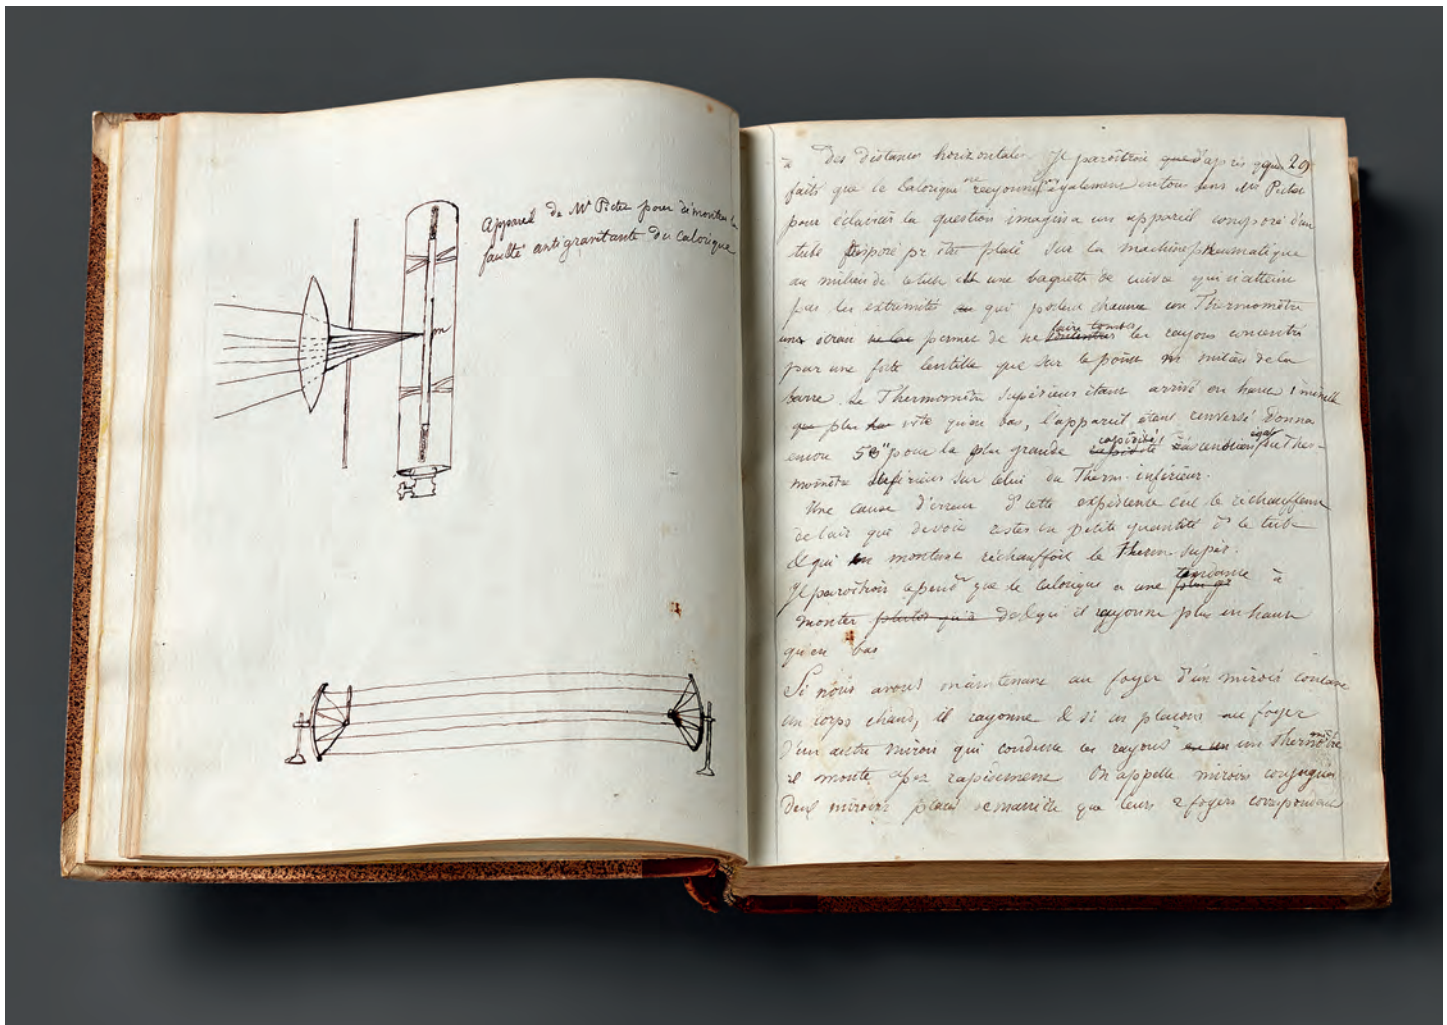 appareil de Mr Pictet pour démontrer la
faculté antigravitante du calorique
m
à des distances horizontales Il paroîtroit que d'après qques 29
faits que le Calorique ne rayonne pas également en tous sens Mr Pictet
pour éclaircir la question imagina un appareil composé d'un
tube disposé pr être placé sur la machine pneumatique
au milieu de ce tube est une baguette de cuivre qui n'atteint
pas les extremités qui portent chacune un Thermomètre
un écran permet de ne faire tomber les rayons concentrés
par une forte lentille que sur le point m milieu de la
barre. Le Thermomètre supérieur étant arrivé en haut 1 minute
plus vite qu'en bas, l'appareil étant renversé donna
encore 58" pour la plus grande rapidité du Ther-
momètre supérieur sur celui du Therm. inférieur.
Une cause d'erreur d cette expérience est le réchauffement
de l'air qui devoit rester en petite quantité d le tube
& qui en montant réchauffoit le Therm. supér.
Il paroîtroit cepend. que le calorique a une tendance à
monter plutot qu'à & qu'il rayonne plus en haut
qu'en bas
Si nous avons maintenant au foyer d'un miroir concave
un corps chaud, il rayonne & si on plaçons au foyer
d'un autre miroir qui condense ces rayons un Thermomètre
il monte assez rapidement On appelle miroirs conjugués
deux miroirs placés de manière que leurs 2 foyers correspondent